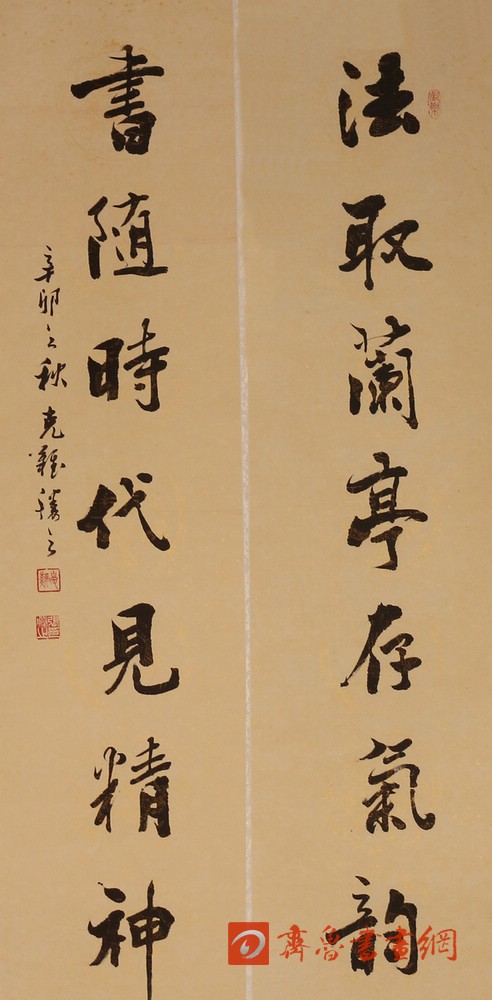 法取蘭亭存氣韵
書隨時代見精神
辛卯之秋克難
齊魯書畫網